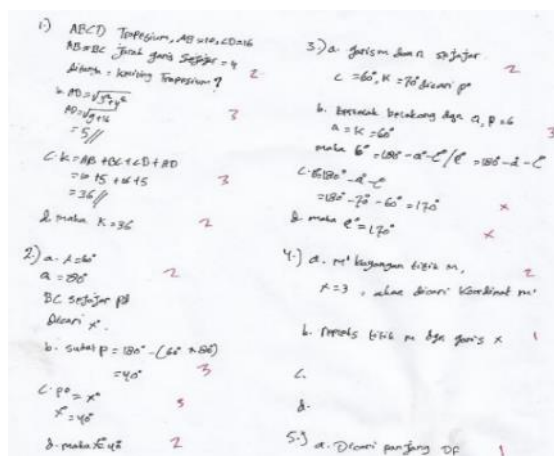 1.) ABCD Trapesium, AB=10, CD=16
AD=BC jarak garis sejajar = 4
ditanya = keliling Trapesium? 2
b. AD=√3²+4²
AD=√9+16 3
= 5//
C. K = AB + BC + CD + AD
= 10 + 5 + 16 + 5 3
= 36//
d. maka K = 36 2
2.) a. = 60° 2
Q = 80°
BC sejajar
Dicari x°.
b. sudut P = 180° - (60° + 80°)
= 40° 3
C. p° = x° 3
x° = 40°
d. maka x = 40 2
3.) a. garis m dan n sejajar 2
c = 60°, K = 70° dicari p°
b. bertolak belakang dga 3
a = K = 60°
maka b° = 180° - a° - c°
C. 180° - a° - c°
= 180° - 70° - 60° = 170° x
d. maka = 170° x
4.) a. m' bayangan titik m, 2
x = 3, akan dicari koordinat m'
b. Refleks titik m dga garis x 1
C.
d.
5.) a. Dicari panjang DF 1